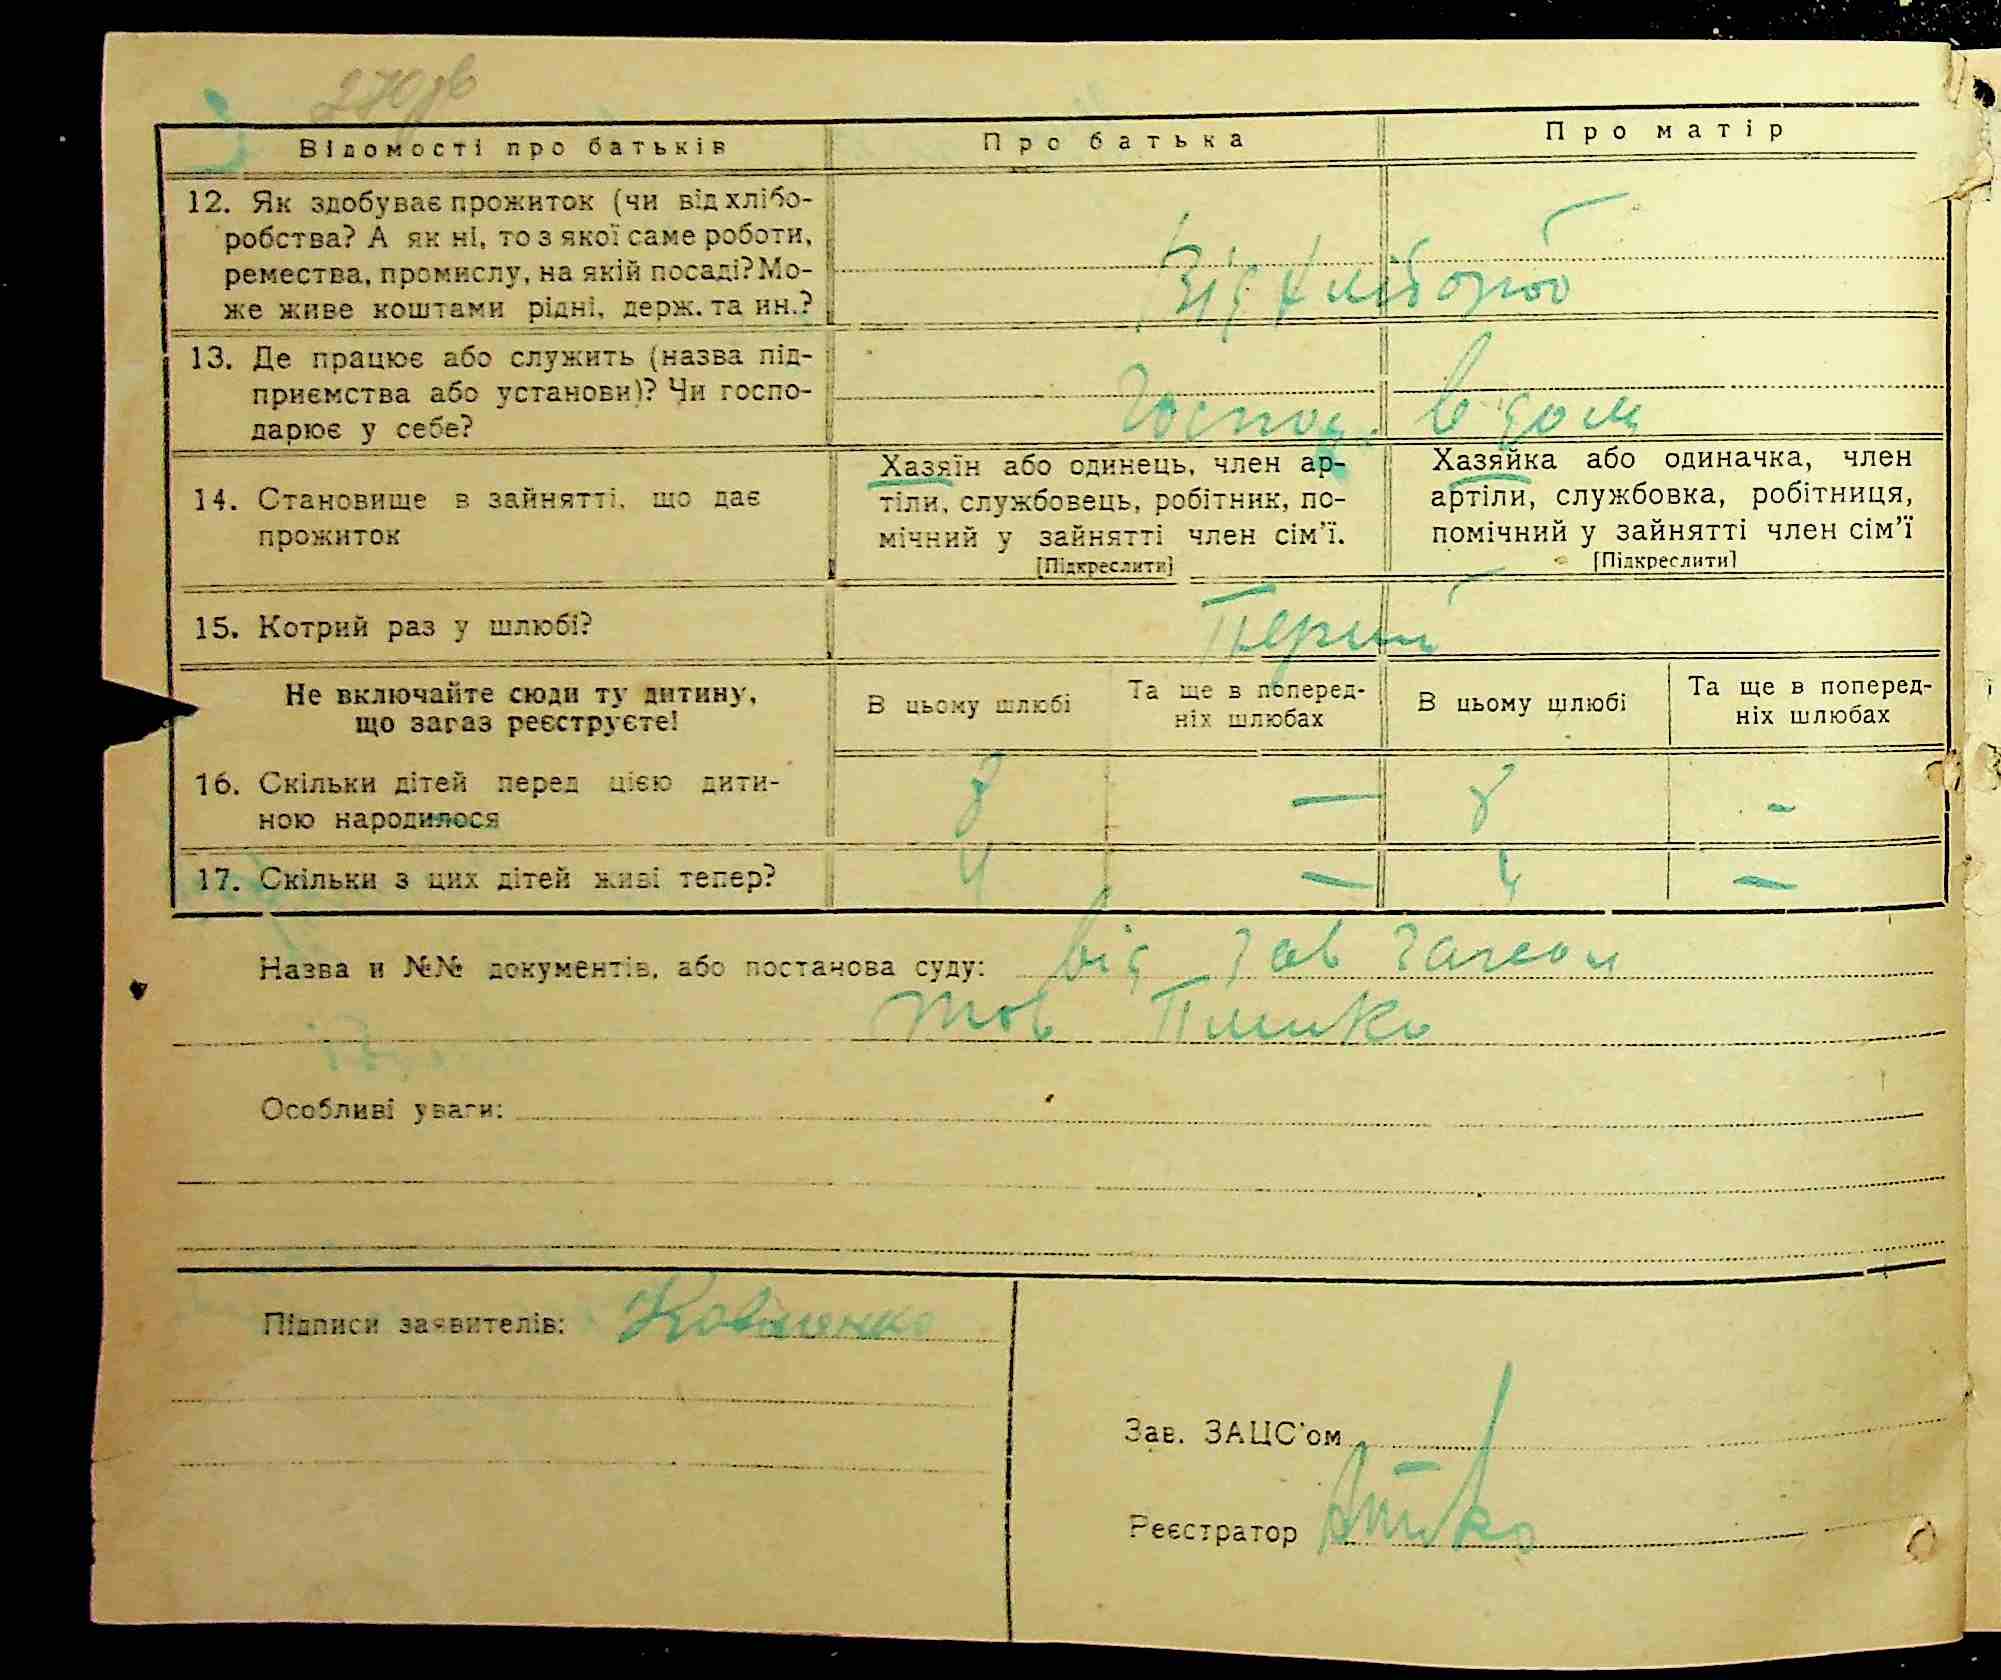 270зв
Відомості про батьків
Про батька
Про матір
12. Як здобуває прожиток (чи від хлібо-
робства? А як ні, то з якої саме роботи,
ремества, промислу, на якій посаді? Мо-
же живе коштами рідні, держ. та ин.?
Від хлібороб
13. Де працює або служить (назва під-
приємства або установи)? Чи госпо-
дарює у себе?
Господ. в дом
14. Становище в зайнятті, що дає
прожиток
Хазяїн або одинець, член ар-
тіли, службовець, робітник, по-
мічний у зайнятті член сім'ї.
[Підкреслити]
Хазяйка або одиначка, член
артіли, службовка, робітниця,
помічний у зайнятті член сім'ї
[Підкреслити]
15. Котрий раз у шлюбі?
Перший
Не включайте сюди ту дитину,
що зараз реєструєте!
В цьому шлюбі
Та ще в поперед-
ніх шлюбах
В цьому шлюбі
Та ще в поперед-
ніх шлюбах
16. Скільки дітей перед цією дити-
ною народилося
8 — 8 -
17. Скільки з цих дітей живі тепер?
4 — 4 —
Назва и №№ документів, або постанова суду: від зав загсом
тов
Особливі уваги:
Підписи заявителів:
Зав. ЗАЦС'ом
Реєстратор